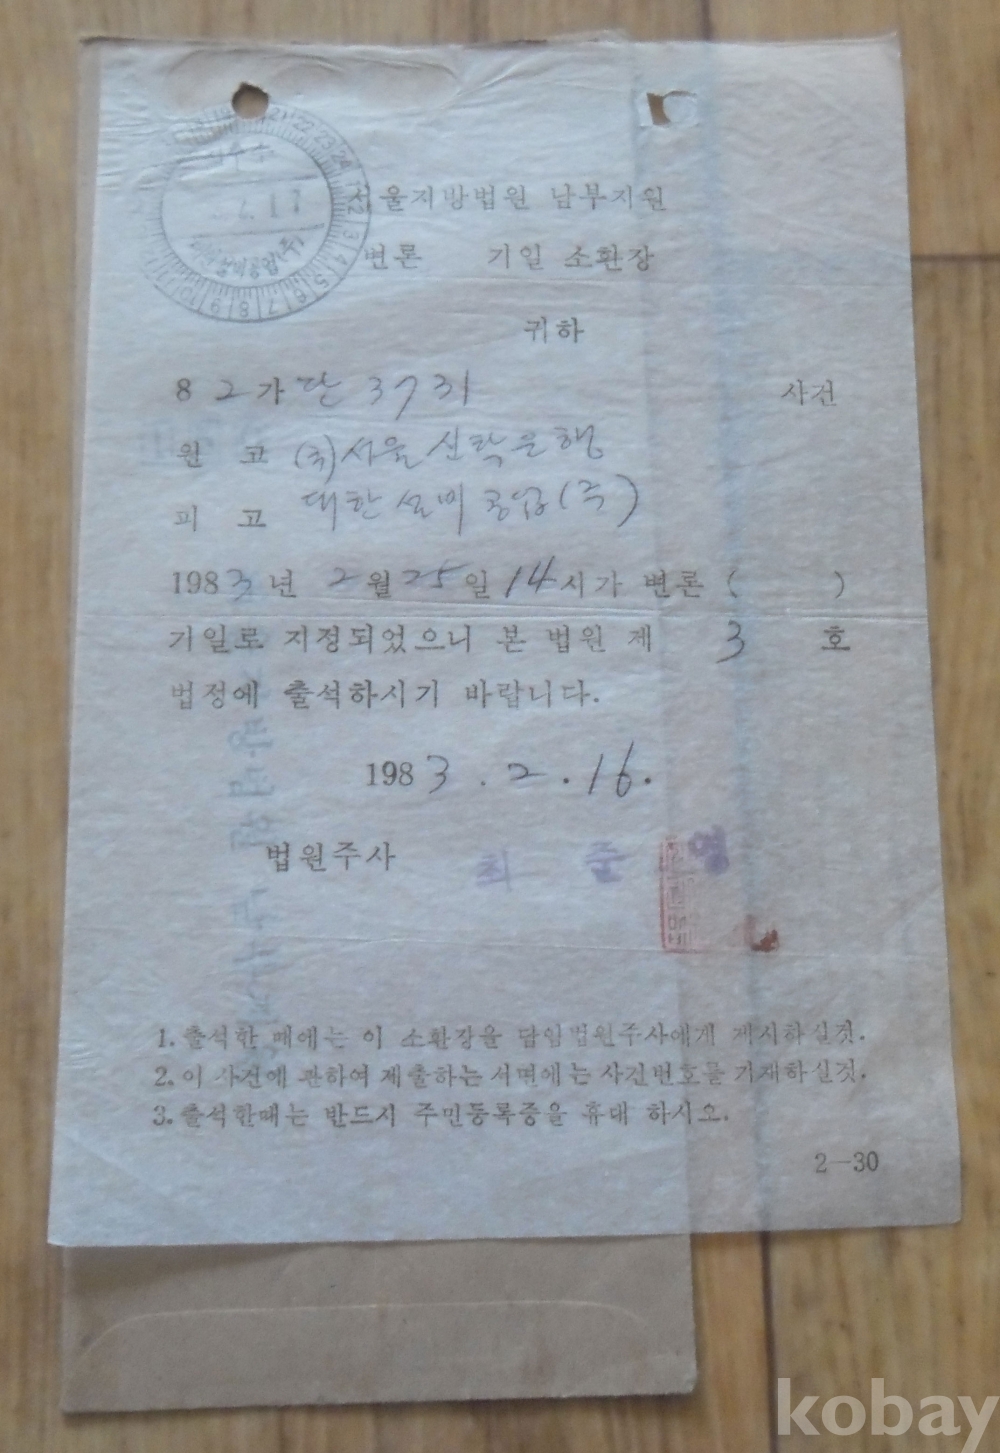 서울지방법원 남부지원
변론 기일 소환장
귀하
82가단3731 사건
원 고 (주)서울신탁은행
피 고 대한설비공업(주)
1983년 2월25일14시가 변론( )
기일로 지정되었으니 본 법원 제 3 호
법정에 출석하시기 바랍니다.
1983.2.16.
법원주사 최 준 영
1. 출석한 때에는 이 소환장을 담임법원주사에게 제시하실것.
2. 이 사건에 관하여 제출하는 서면에는 사건번호를 기재하실것.
3. 출석한때는 반드시 주민등록증을 휴대 하시오.
2—30
kobay